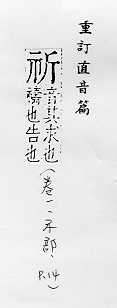 重訂直音篇
祈
音其求也
禱也告也
(卷一、示部、P.14)